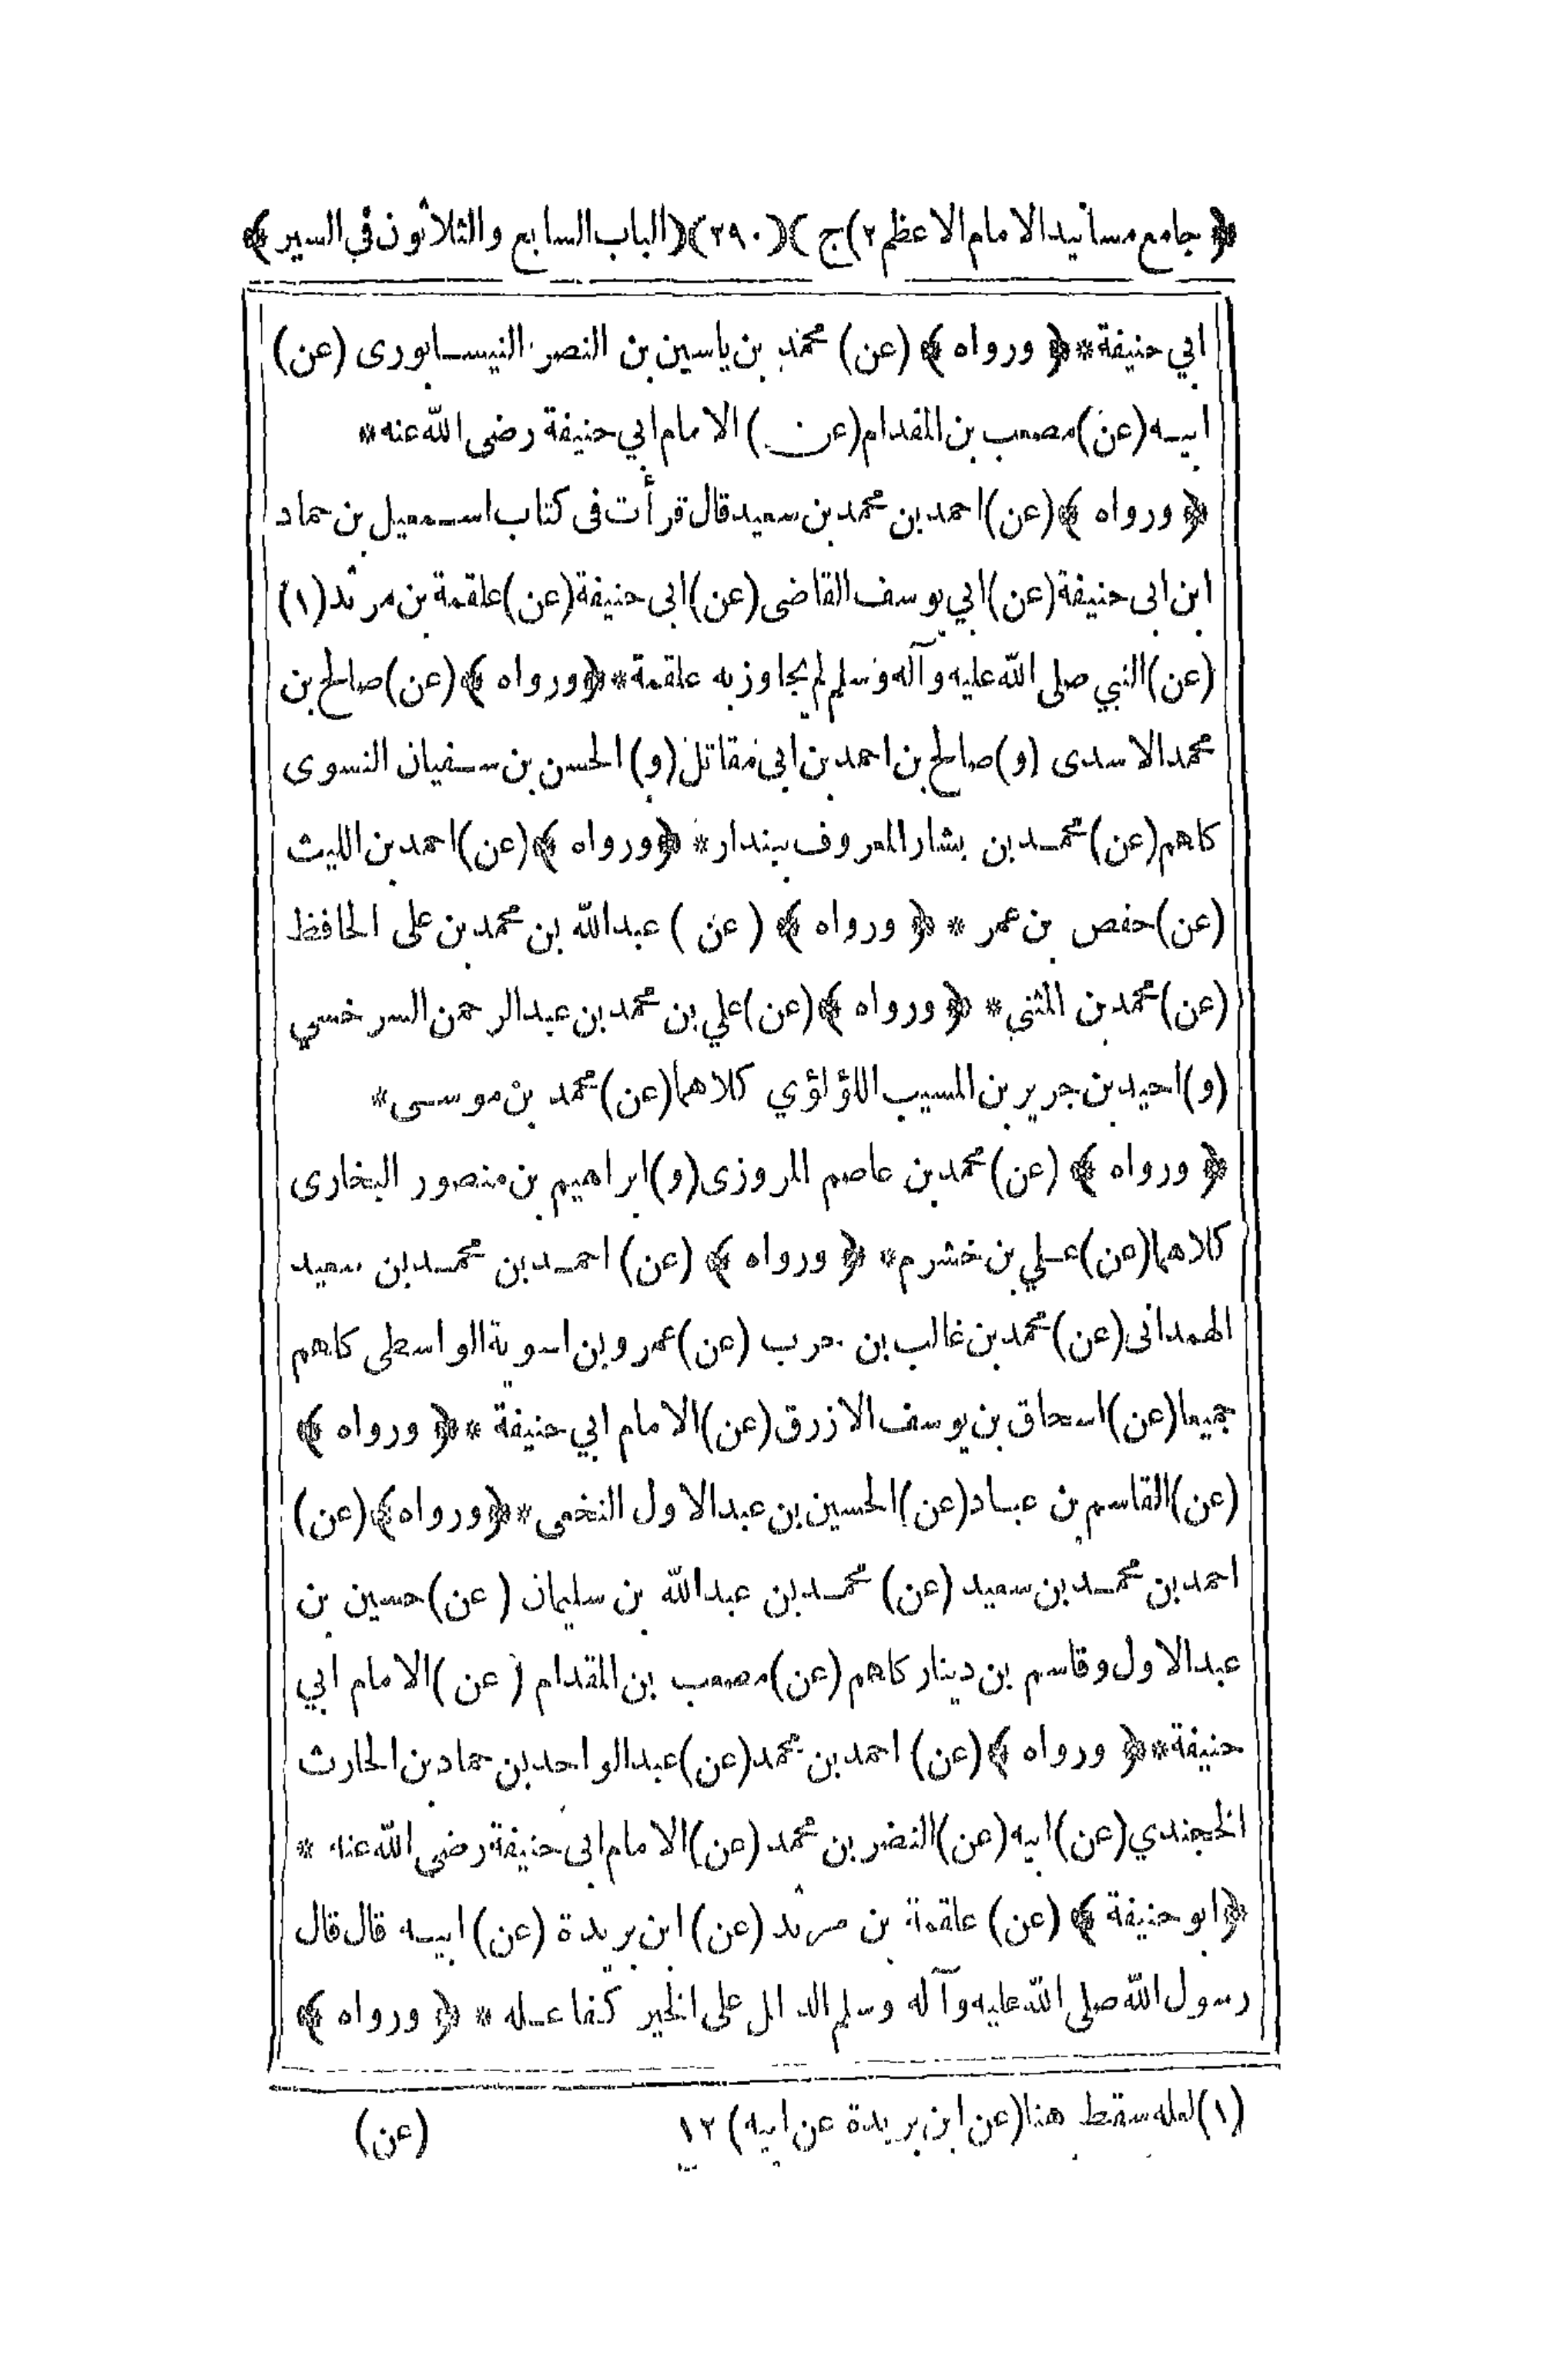 ﴿ جامع مسانيد الامام الاعظم ٢)ج )(٢٩٠)(الباب السابع والثلاثون في السير ﴾
ابي حنيفة * ﴿ ورواه ﴾ (عن) محمد بن ياسين بن النصر النيسابورى (عن)
ابيه (عن) مصعب بن المقدام (عن) الامام ابي حنيفة رضى الله عنه *
﴿ ورواه ﴾ (عن) احمد بن محمد بن سعيد قال قرأت فى كتاب اسمعيل بن حماد
ابن ابى حنيفة (عن) ابي يوسف القاضى (عن) ابى حنيفة (عن) علقمة بن مرثد (١)
(عن) النبي صلى الله عليه وآله وسلم لم يجاوز به علقمة * ﴿ ورواه ﴾ (عن) صالح بن
محمد الاسدى (و) صالح بن احمد بن ابى مقاتل (و) الحسن بن سفيان النسوى
كلهم (عن) محمد بن بشار المعروف ببندار * ﴿ ورواه ﴾ (عن) احمد بن الليث
(عن) حفص بن عمر * ﴿ ورواه ﴾ (عن) عبد الله بن محمد بن على الحافظ
(عن) محمد بن المثني * ﴿ ورواه ﴾ (عن) علي بن محمد بن عبد الرحمن السرخسي
(و) احيد بن جرير بن المسيب اللؤلؤي كلاهما (عن) محمد بن موسى *
﴿ ورواه ﴾ (عن) محمد بن عاصم المروزى (و) ابراهيم بن منصور البخارى
كلاهما (عن) علي بن خشرم * ﴿ ورواه ﴾ (عن) احمد بن محمد بن سعيد
الهمدانى (عن) محمد بن غالب بن حرب (عن) عمرو بن اسوية الواسطى كلهم
جميعا (عن) اسحاق بن يوسف الازرق (عن) الامام ابي حنيفة * ﴿ ورواه ﴾
(عن) القاسم بن عباد (عن) الحسين بن عبد الاول النخعى * ﴿ ورواه ﴾ (عن)
احمد بن محمد بن سعيد (عن) محمد بن عبد الله بن سليمان (عن) حسين بن
عبد الاول وقاسم بن دينار كلهم (عن) مصعب بن المقدام (عن) الامام ابي
حنيفة * ﴿ ورواه ﴾ (عن) احمد بن محمد (عن) عبد الواحد بن حماد بن الحارث
الخجندي (عن) ابيه (عن) النضر بن محمد (عن) الامام ابى حنيفة رضى الله عنه *
﴿ ابو حنيفة ﴾ (عن) علقمة بن مرثد (عن) ابن بريدة (عن) ابيه قال قال
رسول الله صلى الله عليه وآله وسلم الدال على الخير كفاعله * ﴿ ورواه ﴾
(١) لعله سقط هنا (عن ابن بريدة عن ابيه) ١٢ (عن)